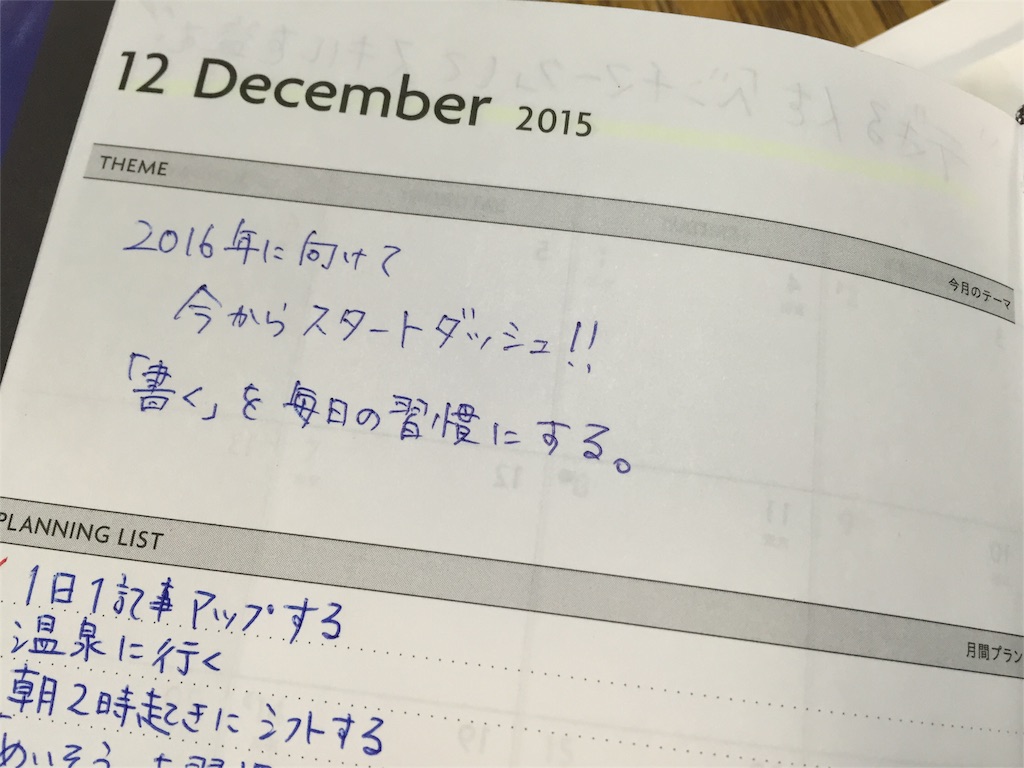 12 December 2015
THEME
今月のテーマ
2016年に向けて
今からスタートダッシュ!!
「書く」を毎日の習慣にする。
PLANNING LIST
月間プラン
1日1記事アップする
温泉に行く
朝2時起きにシフトする
めいそう